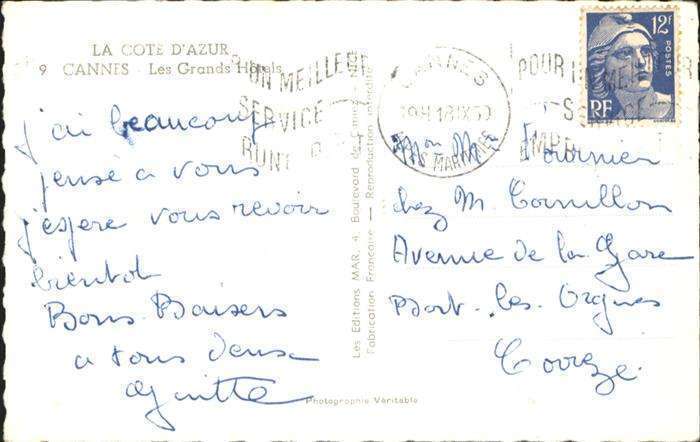 LA COTE D'AZUR
9 CANNES - Les Grands Hôtels
j'ai beaucoup
pensé a vous
j'espere vous revoir
bientot
Bons Baisers
a tous deux
Les Editions MAR, 4, Boulevard de
Fabrication Française — Reproduction interdite
Photographie Véritable
CANNES
19H 18 IX 50
ALPES MARITIMES
POUR UN MEILLEUR
SERVICE
12F
POSTES
RF
Mon M. Fournier
chez M. Cornillon
Avenue de la Gare
Bort-les-Orgues
Corrèze.